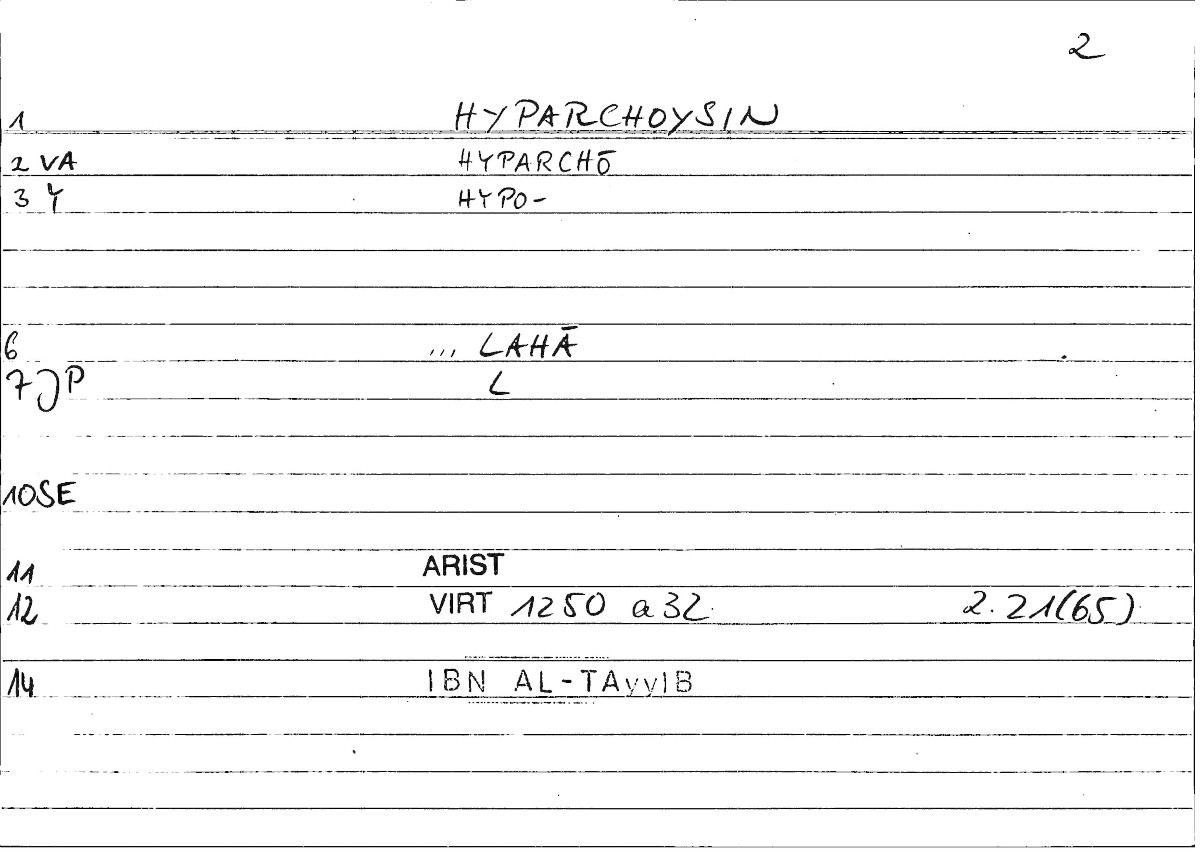 2
1 HYPARCHOYSIN
2 VA HYPARCHŌ
3 Y HYPO-
6 ... LAHĀ
7 JP L
10SE
11 ARIST
12 VIRT 1250 a 32 2.21(65)
14 IBN AL-TAyyIB